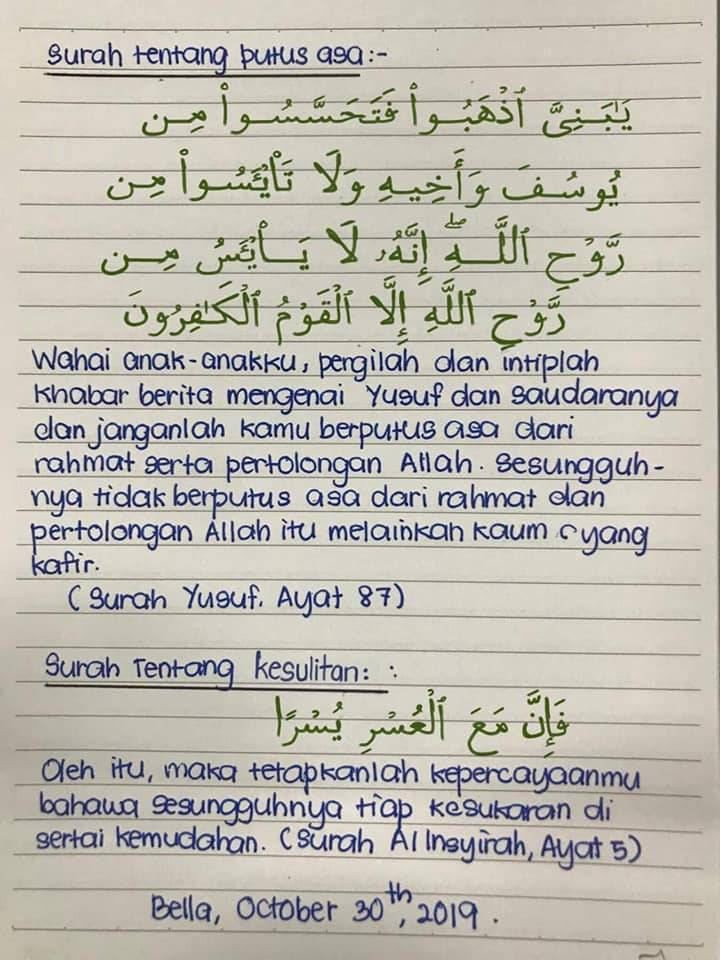 Surah tentang putus asa:-
يَٰبَنِىَّ ٱذْهَبُوا۟ فَتَحَسَّسُوا۟ مِن
يُوسُفَ وَأَخِيهِ وَلَا تَا۟يْـَٔسُوا۟ مِن
رَّوْحِ ٱللَّهِ ۖ إِنَّهُۥ لَا يَا۟يْـَٔسُ مِن
رَّوْحِ ٱللَّهِ إِلَّا ٱلْقَوْمُ ٱلْكَٰفِرُونَ
Wahai anak-anakku, pergilah dan intiplah
khabar berita mengenai Yusuf dan saudaranya
dan janganlah kamu berputus asa dari
rahmat serta pertolongan Allah. Sesungguh-
nya tidak berputus asa dari rahmat dan
pertolongan Allah itu melainkah kaum yang
kafir.
(Surah Yusuf. Ayat 87)
Surah Tentang kesulitan: :
فَإِنَّ مَعَ ٱلْعُسْرِ يُسْرًا
Oleh itu, maka tetapkanlah kepercayaanmu
bahawa sesungguhnya tiap kesukaran di
sertai kemudahan. (Surah Al Insyirah, Ayat 5)
Bella, October 30th, 2019.